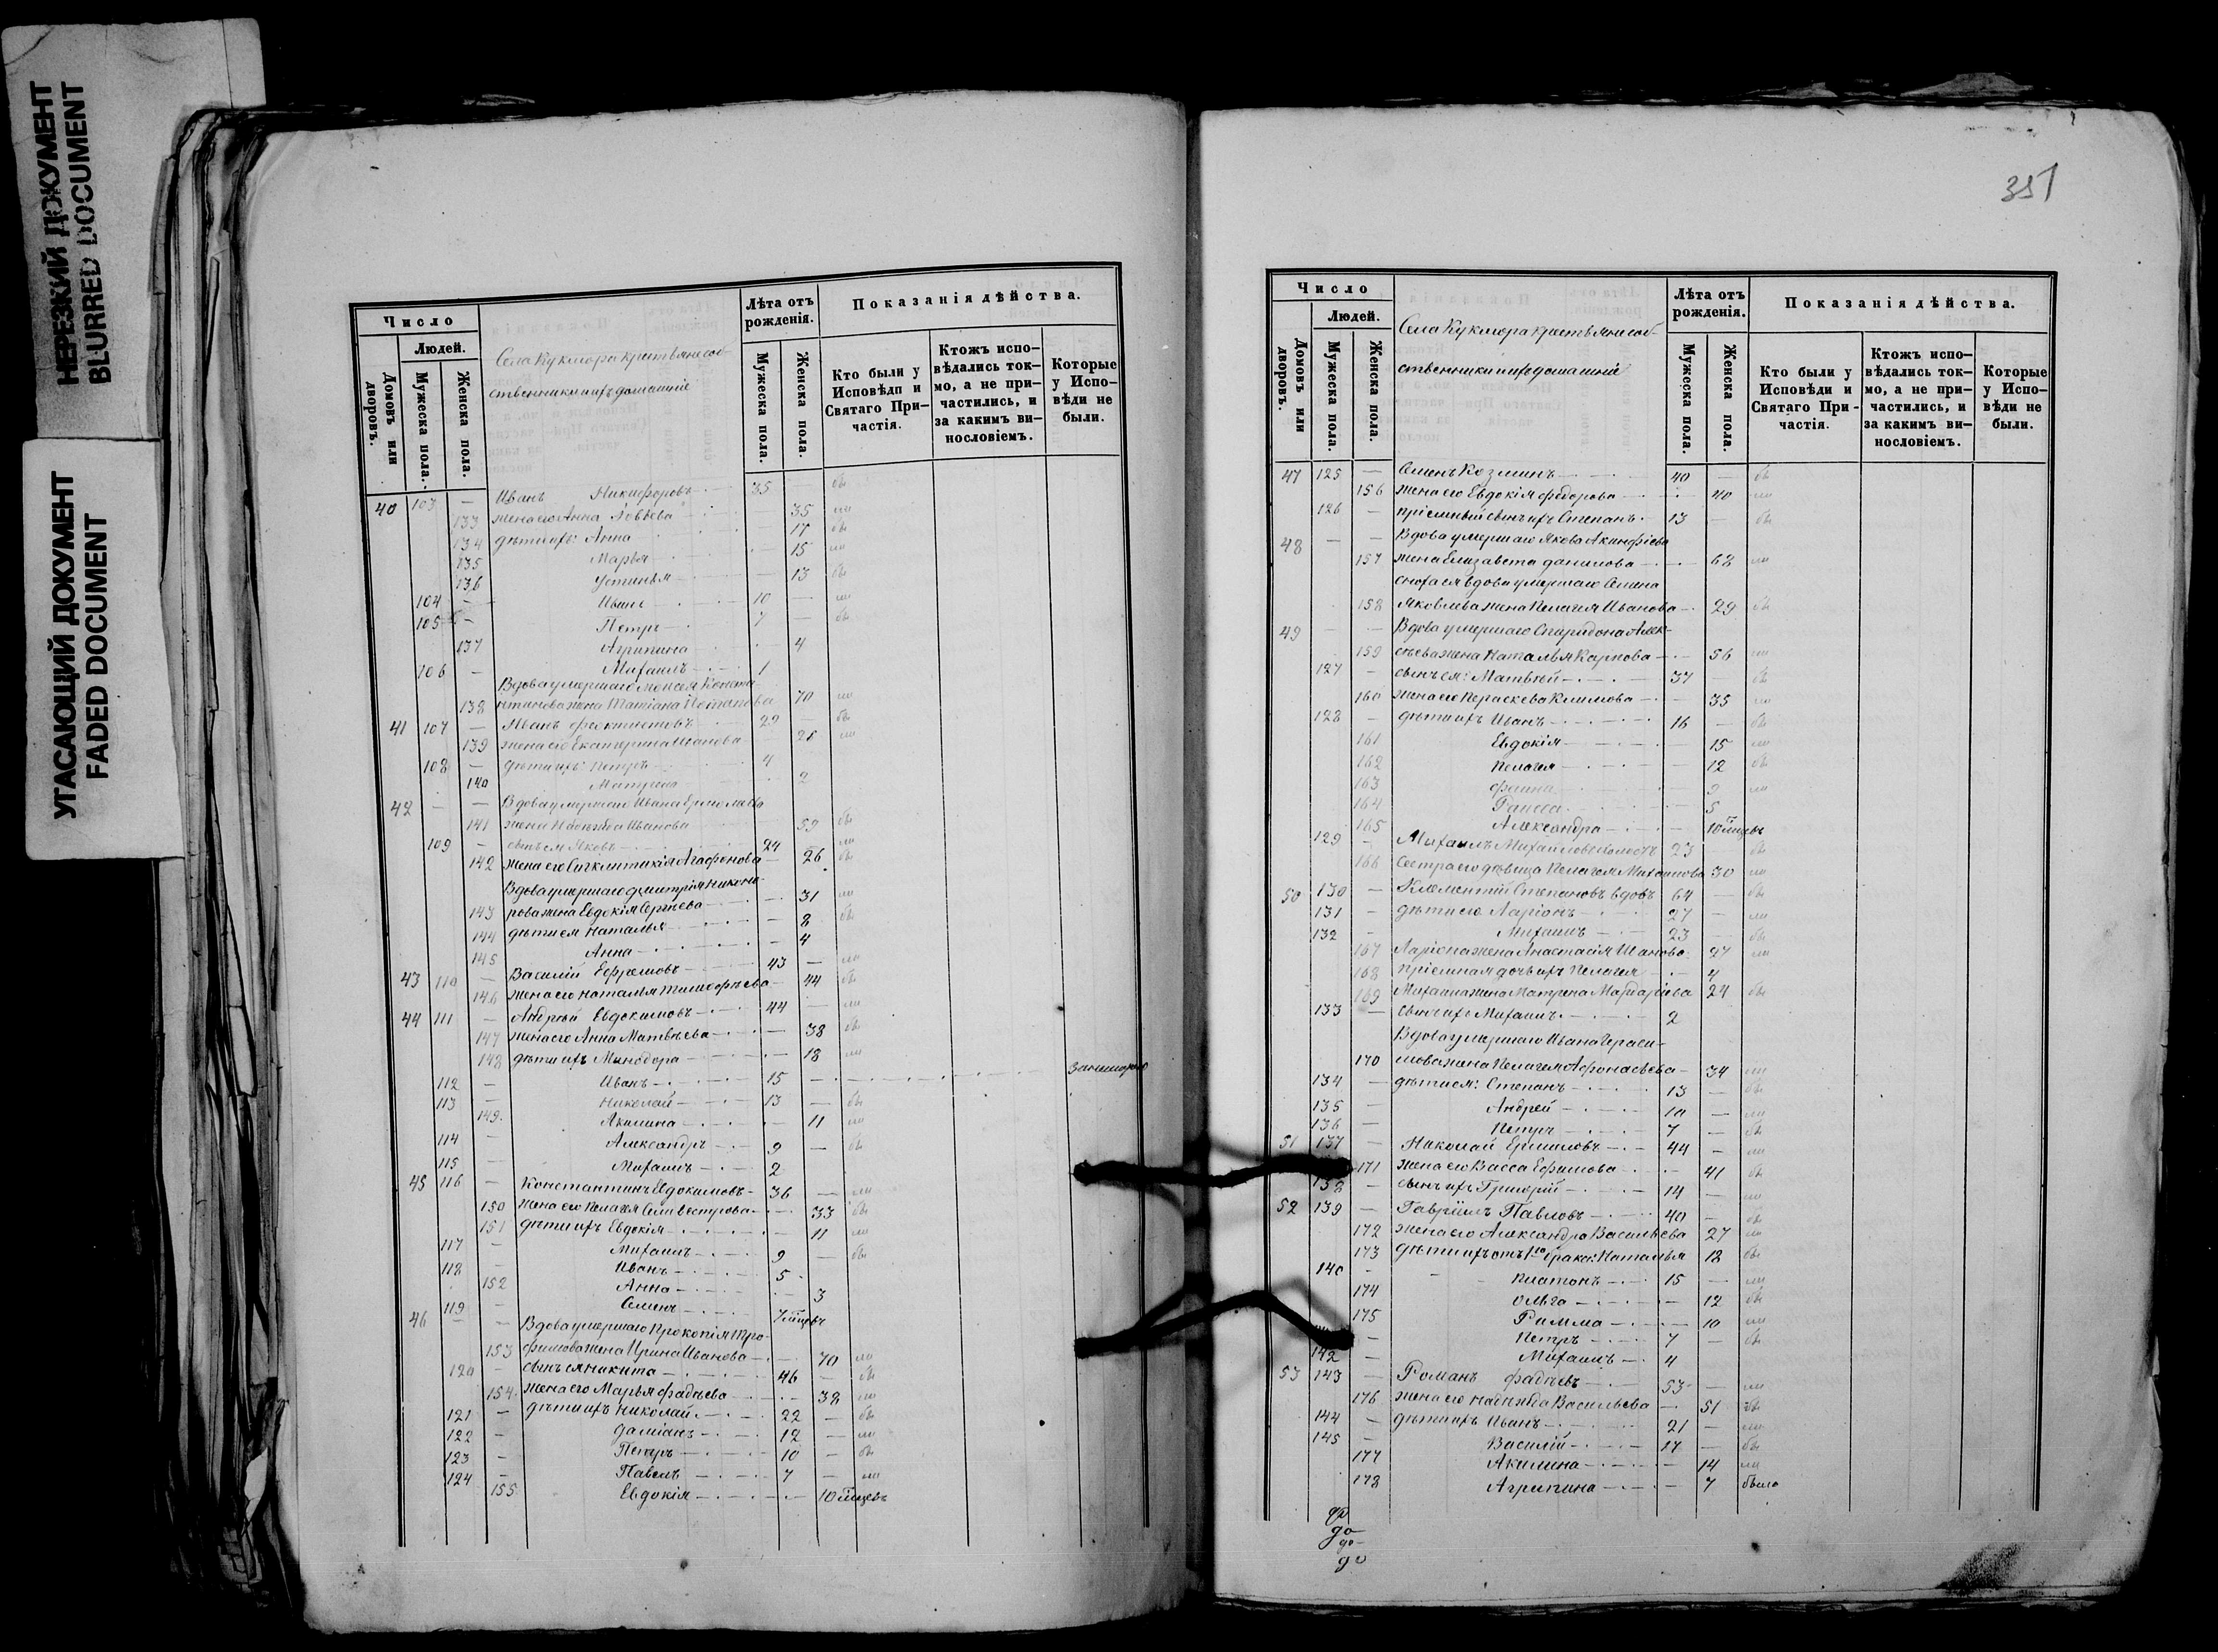 НЕРЕЗКИЙ ДОКУМЕНТ
BLURRED DOCUMENT
УГАСАЮЩИЙ ДОКУМЕНТ
FADED DOCUMENT
Число
Людей.
Домовъ или дворовъ.
Мужеска пола.
Женска пола.
Села Кукмора крестьяне соб-
ственники и ихъ домашніе
Лѣта отъ рожденія.
Мужеска пола.
Женска пола.
Показанія дѣйства.
Кто были у Исповѣди и Святаго При-частія.
Ктожъ испо-вѣдались ток-мо, а не при-частились, и за какимъ ви-нословіемъ.
Которые у Испо-вѣди не были.
40 103 — Иванъ Никифоровъ 35 — бы
133 жена его Анна 35 ли
134 дѣти ихъ: Анна 17 бы
135 Марья 15 ли
136 Устинья 13 бы
104 — Иванъ 10 — ли
105 — Петръ 7 — бы
137 Агрипина 4
106 — Михаилъ 1
Вдова умершаго Моисея Конста-
138 нтинова жена Татіана Потапова 70 ли
41 107 — Иванъ Феоктистовъ 29 — бы
139 жена его Екатерина Иванова 25 ли
108 — дѣти ихъ: Петръ 4
140 Матрена 2
42 — — Вдова умершаго Ивана Ермолаева
141 жена Надежда Иванова 59 бы
109 — сынъ ея Яковъ 24 — ли
142 жена его Сигклитикія Агафонова 26 бы
Вдова умершаго Димитрія Никано-
143 рова жена Евдокія Сергѣева 31 ли
144 дѣти ея Наталья 8 бы
145 Анна 4
43 110 — Василій Ефремовъ 43 — ли
146 жена его Наталья Тимофѣева 44 бы
44 111 — Андрей Евдокимовъ 44 — ли
147 жена его Анна Матвѣева 38 бы
148 дѣти ихъ Минодора 18 ли
112 — Иванъ 15 —
113 — Николай 13 — бы
149 Акилина 11 ли
114 — Александръ 9 — бы
115 — Михаилъ 2
45 116 — Константинъ Евдокимовъ 36 — ли
150 жена его Пелагея Сильвестрова 33 бы
151 дѣти ихъ Евдокія 11 ли
117 — Михаилъ 9 — бы
118 — Иванъ 5
152 Анна 3
119 — Семенъ 7 мѣсцевъ
46 — — Вдова умершаго Прокопія Тро-
153 фимова жена Ирина Иванова 70 ли
120 — сынъ ея Никита 46 — бы
154 жена его Марья Фадѣева 38 ли
121 — дѣти ихъ Николай 22 — бы
122 — Даміанъ 12 — ли
123 — Петръ 10 — бы
124 — Павелъ 7 — ли
155 Евдокія 10 мѣсцевъ
351
Число
Людей.
Домовъ или дворовъ.
Мужеска пола.
Женска пола.
Села Кукмора крестьяне соб-
ственники и ихъ домашніе
Лѣта отъ рожденія.
Мужеска пола.
Женска пола.
Показанія дѣйства.
Кто были у Исповѣди и Святаго При-частія.
Ктожъ испо-вѣдались ток-мо, а не при-частились, и за какимъ ви-нословіемъ.
Которые у Испо-вѣди не были.
47 125 — Семенъ Козминъ 40 — бы
156 жена его Евдокія Федорова 40 ли
126 — пріемный сынъ ихъ Степанъ 13 — бы
48 — — Вдова умершаго Якова Акинфіева
157 жена Елизавета Данилова 68 ли
сноха ея вдова умершаго Семена
158 Яковлева жена Пелагея Иванова 29 бы
49 — — Вдова умершаго Спиридона Алек-
159 сѣева жена Наталья Карпова 56 ли
127 — сынъ ея: Матвѣй 37 — бы
160 жена его Параскева Климова 35 ли
128 — дѣти ихъ Иванъ 16 — бы
161 Евдокія 15 ли
162 Пелагея 12 бы
163 Фаина 9 ли
164 Раисса 5
165 Александра 10 мѣсцевъ
129 — Михаилъ Михайловъ холостъ 23 — бы
166 Сестра его дѣвица Пелагея Михайлова 30 ли
50 130 — Климентій Степановъ вдовъ 64 — бы
131 — дѣти его Ларіонъ 27 — ли
132 — Михаилъ 23 — бы
167 Ларіона жена Анастасія Иванова 27 ли
168 пріемная дочь ихъ Пелагея 4
169 Михаила жена Матрена Мардаріева 24 бы
133 — сынъ ихъ Михаилъ 2
Вдова умершаго Ивана Гераси-
170 мова жена Пелагея Афонасьева 34 ли
134 — дѣти ея: Степанъ 13 — бы
135 — Андрей 10 — ли
136 — Петръ 7 — бы
51 137 — Николай Ермиловъ 44 — ли
171 жена его Васса Ефимова 41 бы
138 — сынъ ихъ Григорій 14 — ли
52 139 — Гавріилъ Павловъ 40 — бы
172 жена его Александра Васильева 27 ли
173 дѣти ихъ отъ 1го брака: Наталья 18 бы
140 — Платонъ 15 — ли
174 Ольга 12 бы
175 Римма 10 ли
— Петръ 7 — бы
142 — Михаилъ 4
53 143 — Романъ Фадѣевъ 53 — ли
176 жена его Надежда Васильева 51 бы
144 — дѣти ихъ Иванъ 21 — ли
145 — Василій 17 — бы
177 Акилина 14 ли
178 Агрипина 7 были
до
до
до